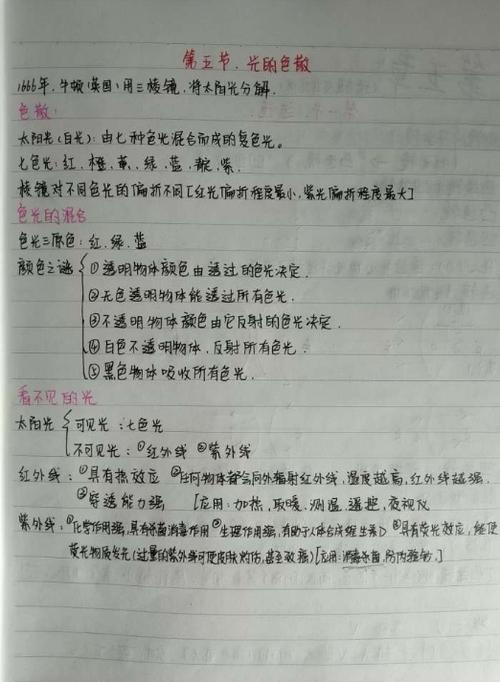 第五节、光的色散
1666年,牛顿(英国)用三棱镜,将太阳光分解.
色散:
太阳光(白光):由七种色光混合而成的复色光。
七色光:红、橙、黄、绿、蓝、靛、紫.
棱镜对不同色光的偏折不同[红光偏折程度最小,紫光偏折程度最大]
色光的混合
色光三原色:红、绿、蓝
颜色之谜 ①透明物体颜色由透过的色光决定.
②无色透明物体能透过所有色光.
③不透明物体颜色由它反射的色光决定.
④白色不透明物体,反射所有色光.
⑤黑色物体吸收所有色光.
看不见的光
太阳光 可见光:七色光
不可见光:①红外线 ②紫外线
红外线:①具有热效应 ②任何物体都会向外辐射红外线,温度越高,红外线越强.
③穿透能力强 [应用:加热,取暖,测温,遥控,夜视仪
紫外线:①化学作用强,具有杀菌消毒作用 ②生理作用强,有助于人体合成维生素D ③具有荧光效应,能使
荧光物质发光(过量的紫外线可使皮肤灼伤,甚至致癌)[应用:消毒杀菌,防伪验钞.]